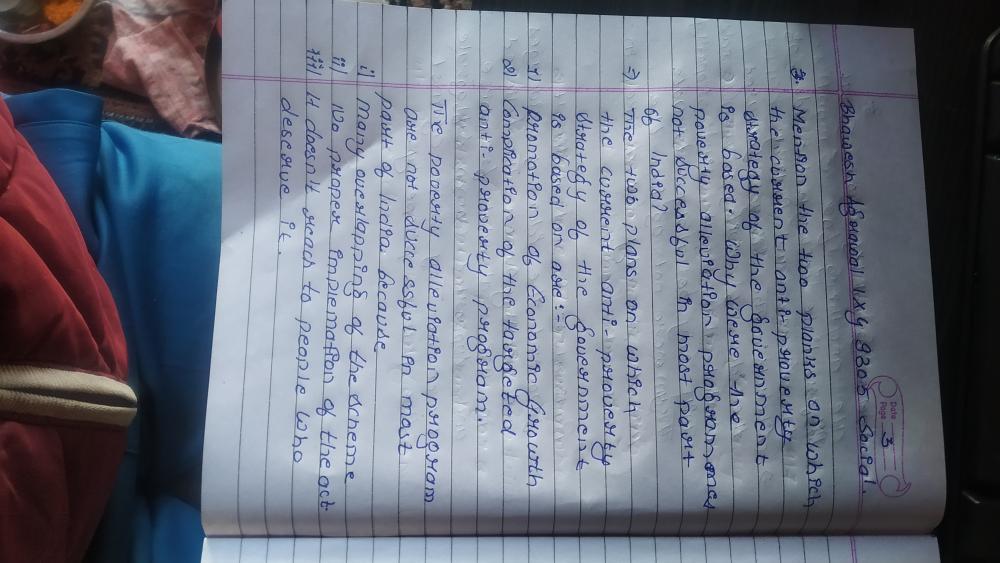 Date
Page 3
Bhawesh Agrawal IX Y 9205 Social.
3. Mention the two planks on which
the current anti-proverty
strategy of the Government
is based. Why were the
proverty alleviation programmes
not successful in most part
of India?
⇒ The two plans on which
the current anti-proverty
stratedy of the Government
is based on are:-
1) Promotion of Economic Growth
2) Complication of the targeted
anti-proverty program.
The poverty alleviation program
are not successful in most
part of India because
i) Many overlapping of the scheme
ii) No proper implemation of the act
iii) It doesn't reach to people who
deserve it.